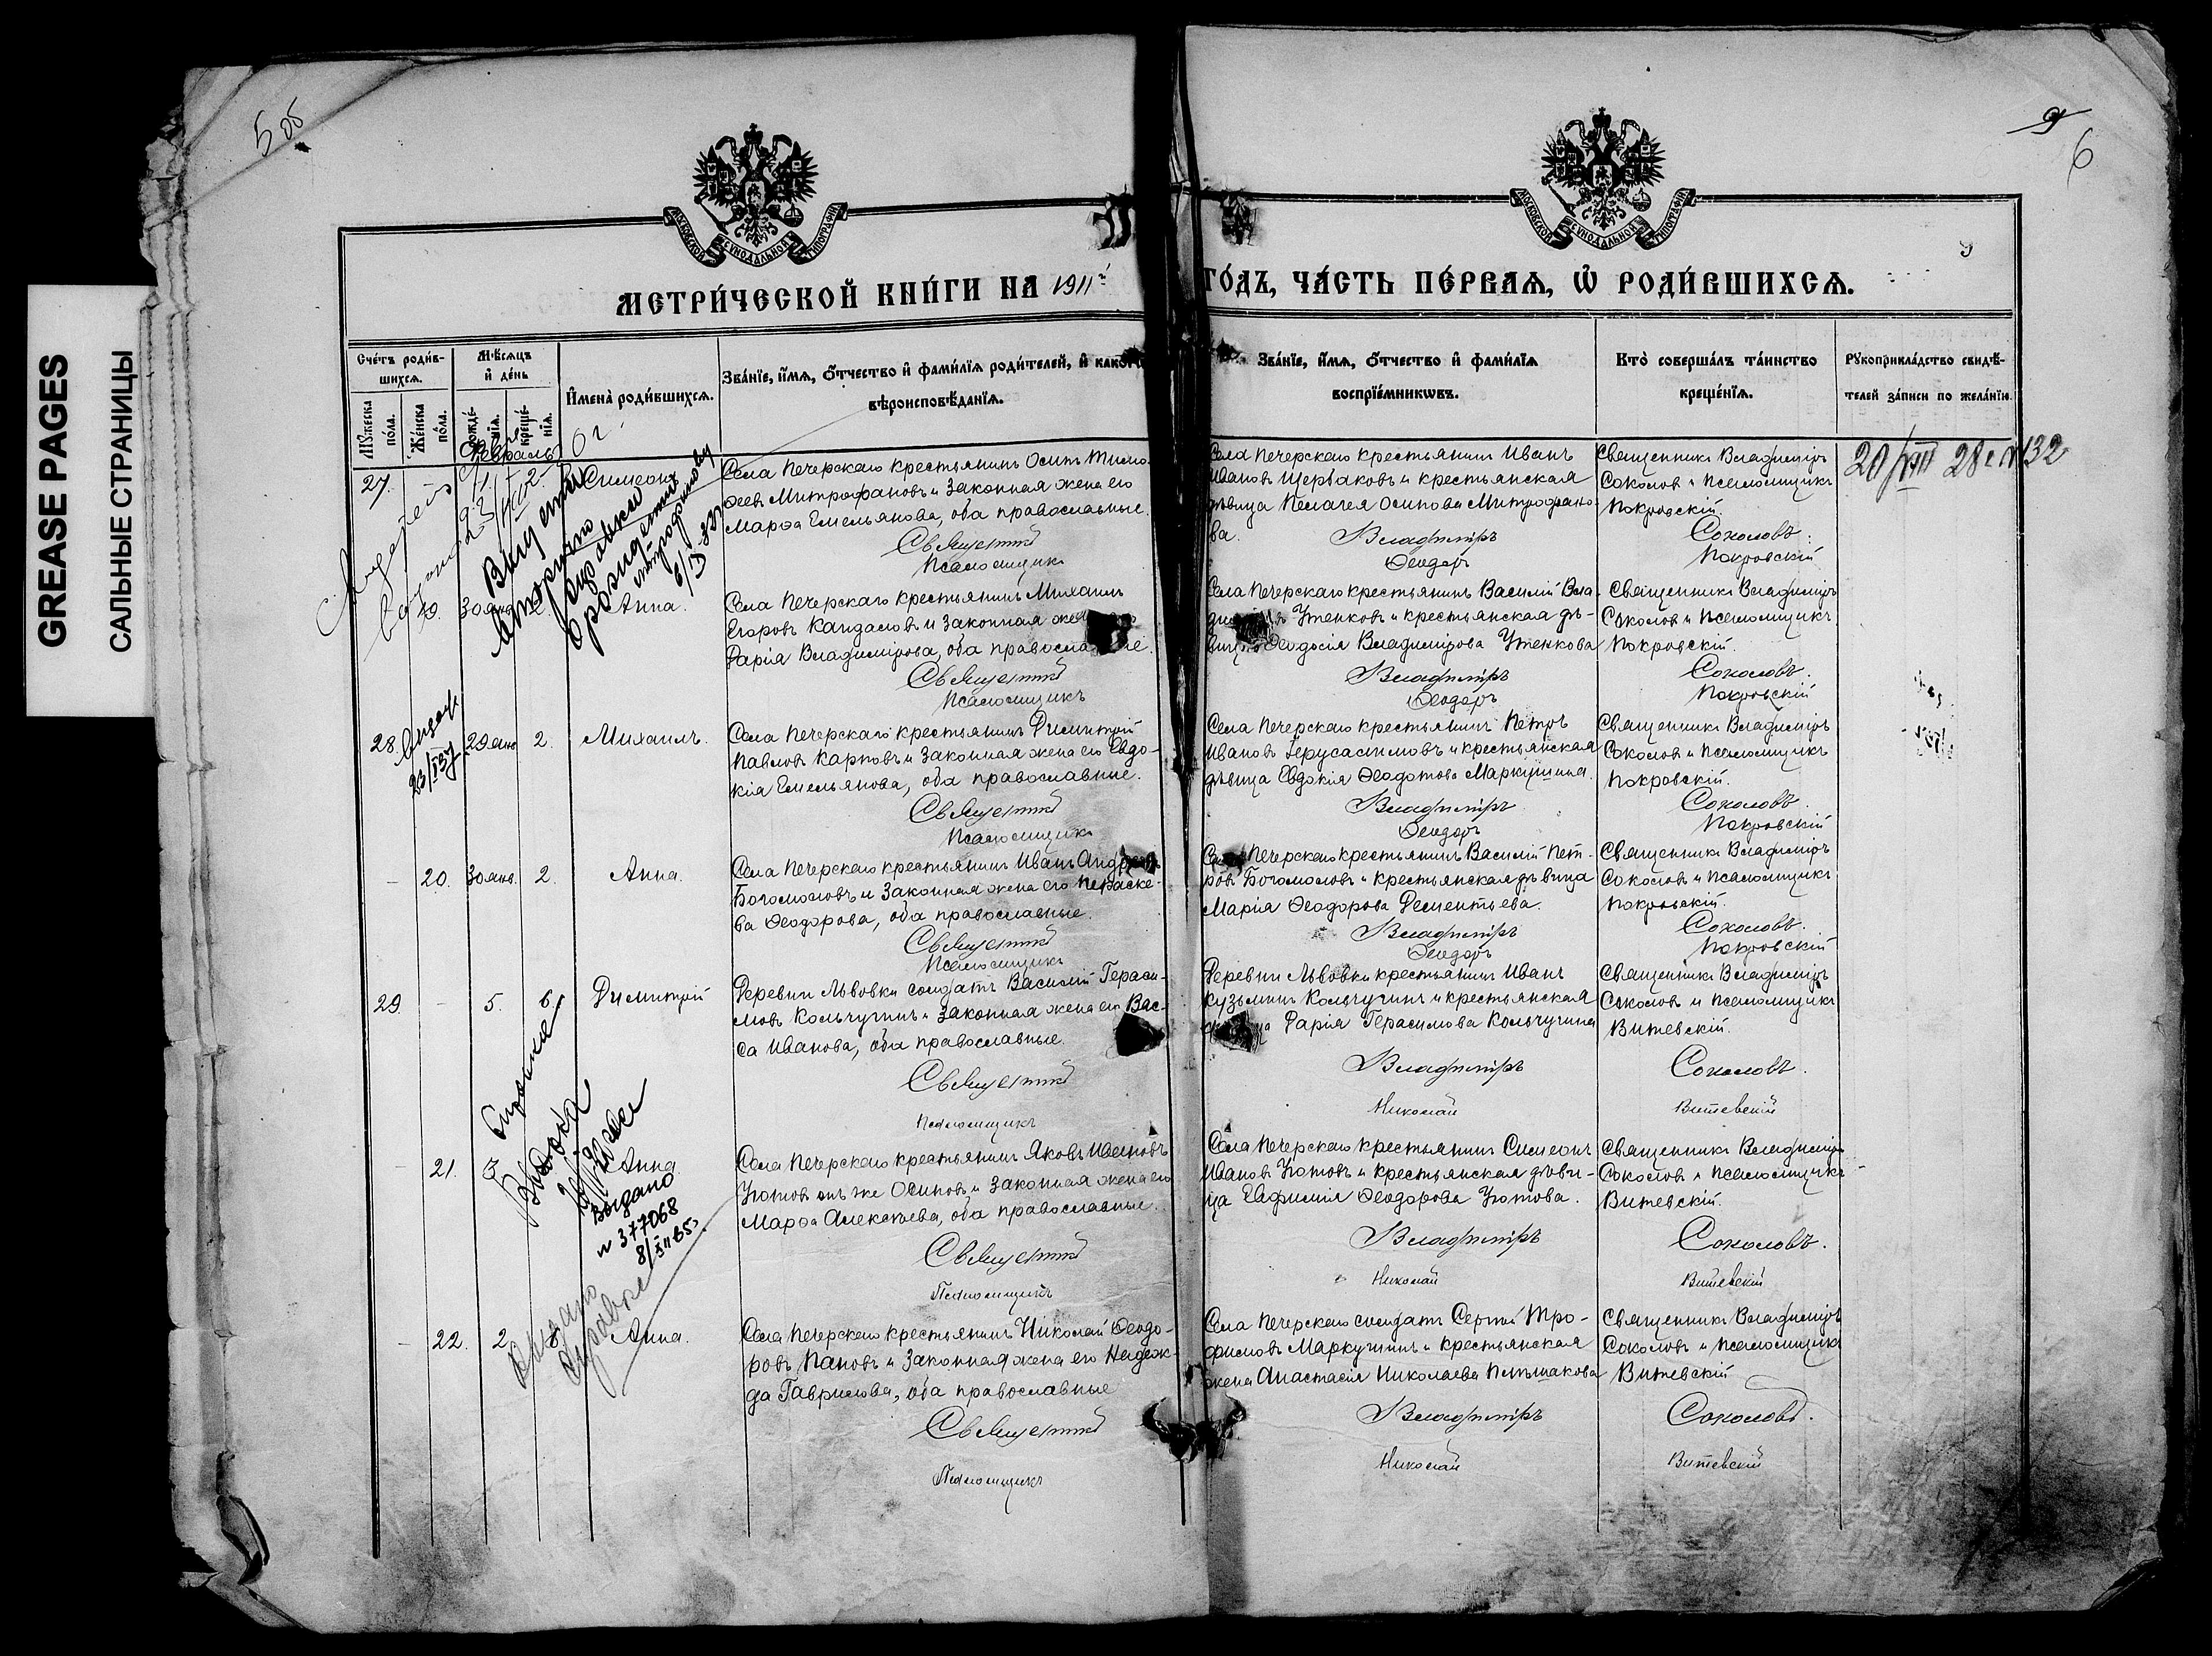 GREASE PAGES
САЛЬНЫЕ СТРАНИЦЫ
5 об
9
6
МОСКОВСКОЙ СѴНОДАЛЬНОЙ ТИПОГРАФІИ
МОСКОВСКОЙ СѴНОДАЛЬНОЙ ТИПОГРАФІИ
МЕТРИ́ЧЕСКОЙ КНИ́ГИ НА 1911й
ГО́ДЪ, ЧА́СТЬ ПЕ́РВАѦ, Ѡ҆ РОДИ́ВШИХСѦ.
9
Сче́тъ роди́в-
шихсѧ.
Мꙋ́жеска по́ла.
Же́нска по́ла.
Мѣ́сѧцъ
и҆ де́нь
рожде́-нїѧ.
креще́-нїѧ.
И҆мена̀ роди́вшихсѧ.
Зва́нїе, и҆́мѧ, ѻ҆́тчество и҆ фами́лїѧ роди́телей, и҆ како́гѡ
вѣроисповѣ́данїѧ.
Зва́нїе, и҆́мѧ, ѻ҆́тчество и҆ фами́лїѧ
воспрїе́мникѡвъ.
Кто̀ соверша́лъ та́инство
креще́нїѧ.
Рꙋкоприкла́дство свидѣ́-
телей за́писи по жела́нїю.
Февраль
27. 1. 2. Симеонъ
Села Печерскаго крестьянинъ Осипъ Тимо-
феевъ Митрофановъ и законная жена его
Марѳа Емельянова, оба православные.
Священникъ
Псаломщикъ
Села Печерскаго крестьянинъ Иванъ
Ивановъ Щербаковъ и крестьянская
дѣвица Пелагея Осипова Митрофано-
ва.
Владиміръ
Ѳеодоръ
Священникъ Владиміръ
Соколовъ и псаломщикъ
Покровскій.
Соколовъ.
Покровскій
20/VIII 28 г. N 132
30 янв. Анна.
Села Печерскаго крестьянинъ Михаилъ
Егоровъ Кандаловъ и законная
Дарія Владимірова, оба православные.
Священникъ
Псаломщикъ
Села Печерскаго крестьянинъ Василій Вла-
Утенковъ и крестьянская дѣ-
вица Ѳеодосія Владимірова Утенкова
Владиміръ
Ѳеодоръ
Священникъ Владиміръ
Соколовъ и псаломщикъ
Покровскій.
Соколовъ.
Покровскій
28. 29 янв 2. Михаилъ.
Села Печерскаго крестьянинъ Димитрій
Павловъ Карповъ и законная жена его Евдо-
кія Емельянова, оба православные.
Священникъ
Псаломщикъ
Села Печерскаго крестьянинъ Петръ
Ивановъ Герусалимовъ и крестьянская
дѣвица Евдокія Ѳеодотова Маркушина.
Владиміръ
Ѳеодоръ
Священникъ Владиміръ
Соколовъ и псаломщикъ
Покровскій.
Соколовъ.
Покровскій
- 20. 30 янв. 2. Анна.
Села Печерскаго крестьянинъ Иванъ
Богомоловъ и законная жена его Параске-
ва Ѳеодорова, оба православные.
Священникъ
Псаломщикъ
Печерскаго крестьянинъ Василій Пет-
ровъ Богомоловъ и крестьянская дѣвица
Марія Ѳеодорова Дементьева.
Владиміръ
Ѳеодоръ
Священникъ Владиміръ
Соколовъ и псаломщикъ
Покровскій.
Соколовъ.
Покровскій
29. - 5. 6. Димитрій
Деревни Львовки солдатъ Василій Гераси-
мовъ Кольчугинъ и законная жена его Вас-
са Иванова, оба православные.
Священникъ
Псаломщикъ
Деревни Львовки крестьянинъ Иванъ
Кузьминъ Кольчугинъ и крестьянская
Дарія Герасимова Кольчугина
Владиміръ
Николай
Священникъ Владиміръ
Соколовъ и псаломщикъ
Витевскій.
Соколовъ.
Витевскій
Справка
Выдано
N 377068
8/XII 65 г.
- 21. Анна.
Села Печерскаго крестьянинъ Яковъ Ивановъ
Утотовъ онъ же Осиповъ и законная жена его
Марѳа Алексѣева, оба православные.
Священникъ
Псаломщикъ
Села Печерскаго крестьянинъ Симеонъ
Ивановъ Утотовъ и крестьянская дѣви-
ца Евфимія Ѳеодорова Утотова.
Владиміръ
Николай
Священникъ Владиміръ
Соколовъ и псаломщикъ
Витевскій.
Соколовъ.
Витевскій
- 22. 2 Анна.
Села Печерскаго крестьянинъ Николай Ѳеодо-
ровъ Пановъ и законная жена его Надеж-
да Гаврилова, оба православные
Священникъ
Псаломщикъ
Села Печерскаго солдатъ Сергій Тро-
фимовъ Маркушинъ и крестьянская
жена Анастасія Николаева
Владиміръ
Николай
Священникъ Владиміръ
Соколовъ и псаломщикъ
Витевскій
Соколовъ.
Витевскій